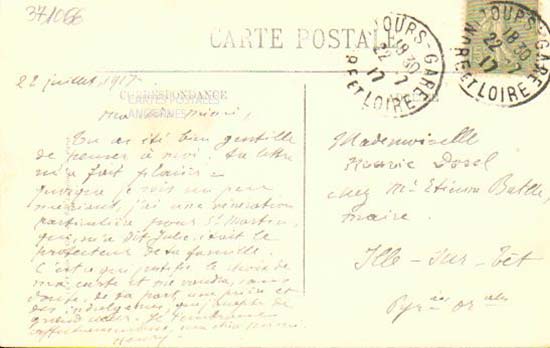 371066
CARTE POSTALE
TOURS-GARE
18 30
22 -7
17
INDRE ET LOIRE
TOURS-GARE
18 30
22 -7
17
INDRE ET LOIRE
22 juillet 1917
CORRESPONDANCE
CARTES POSTALES
ANCIENNES
Ma
Tu as été bien gentille
de penser à moi. Ta lettre
m'a fait plaisir
quoique je sois un peu
j'ai une vénération
particulière pour St Martin,
qui, m'a dit Julie, était le
protecteur de ta famille.
C'est ce qui justifie le choix de
ma carte et me vaudra, sans
doute, de ta part une prière et
des indulgences, que j'accepte de
grand cœur. Je t'embrasse
affectueusement, ma
Henry
Mademoiselle
Marie
chez Mr Etienne Batlle,
maire.
Ille-sur-Tet
Pyr ées or ales